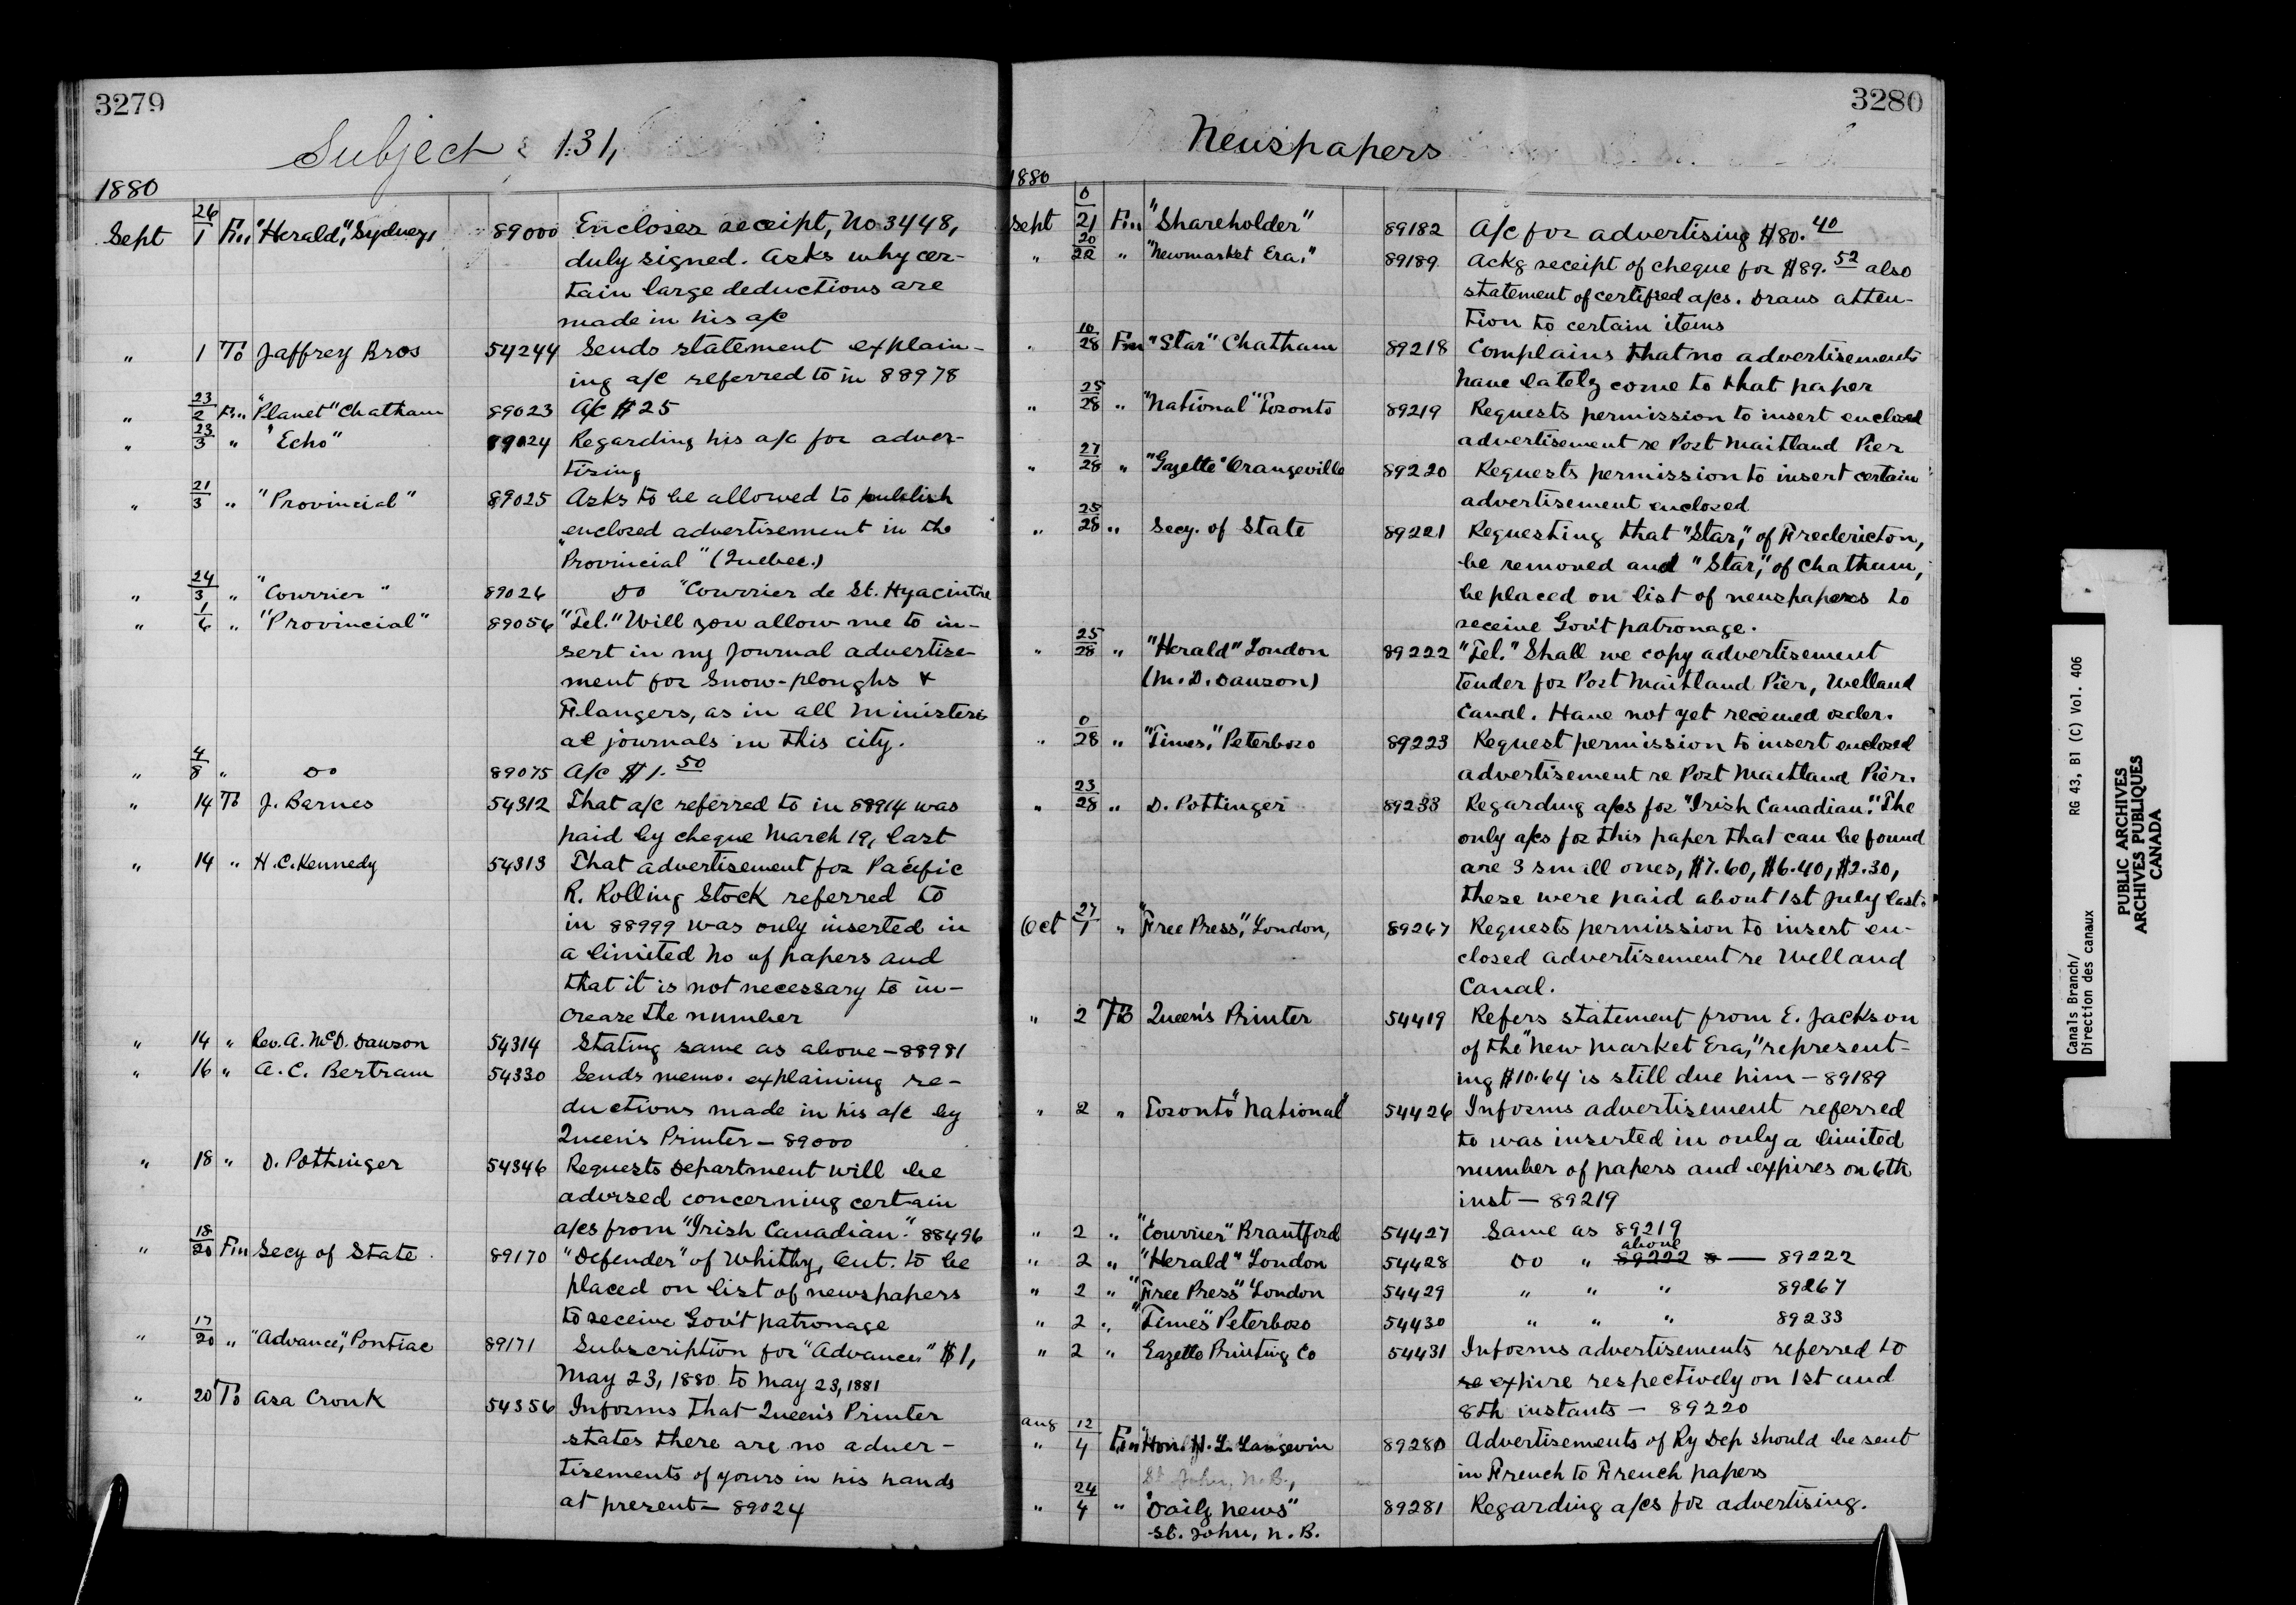 3279
Subject 131,
1880
Sept 26/1 Fm "Herald," Sydney, 89000 Encloses receipt, No 3448,
duly signed. Asks why cer-
tain large deductions are
made in his a/c
" 1 To Jaffrey Bros 54244 Sends statement explain-
ing a/c referred to in 88978
" 23/2 Fm "Planet" Chatham 89023 A/c $25
" 23/3 " "Echo" 89024 Regarding his a/c for adver-
tising
" 21/3 " "Provincial" 89025 Asks to be allowed to publish
enclosed advertisement in the
"Provincial" (Quebec.)
" 24/3 " "Courrier" 89026 Do "Courrier de St. Hyacinthe
" 1/6 " "Provincial" 89056 "Tel." Will you allow me to in-
sert in my Journal advertise-
ment for Snow-ploughs &
Flangers, as in all Ministeri-
al journals in this city.
" 4/8 " Do 89075 A/c $1.50
" 14 To J. Barnes 54312 That a/c referred to in 88914 was
paid by cheque March 19, last
" 14 " H.C. Kennedy 54313 That advertisement for Pacific
R. Rolling Stock referred to
in 88999 was only inserted in
a limited No of papers and
that it is not necessary to in-
crease the number
" 14 " Rev. A. McD. Dawson 54314 Stating same as above - 88981
" 16 " A. C. Bertram 54330 Sends memo. explaining re-
ductions made in his a/c by
Queen's Printer - 89000
" 18 " D. Pottinger 54346 Requests Department will be
advised concerning certain
a/cs from "Irish Canadian." 88496
" 18/20 Fm Secy of State 89170 "Defender" of Whitby, Ont. to be
placed on list of newspapers
to receive Gov't patronage
" 17/20 " "Advance", Pontiac 89171 Subscription for "Advance" $1,
May 23, 1880 to May 23, 1881
" 20 To Asa Cronk 54356 Informs that Queen's Printer
states there are no adver-
tisements of yours in his hands
at present - 89024
3280
Newspapers
1880
Sept 0/21 Fm "Shareholder" 89182 A/c for advertising $80.40
" 20/22 " "Newmarket Era," 89189 Ackg receipt of cheque for $89.52 also
statement of certified a/cs. Draws atten-
tion to certain items
" 10/28 Fm "Star" Chatham 89218 Complains that no advertisements
have lately come to that paper
" 25/28 " "National" Toronto 89219 Requests permission to insert enclosed
advertisement re Port Maitland Pier
" 27/28 " "Gazette" Orangeville 89220 Requests permission to insert certain
advertisement enclosed
" 25/28 " Secy. of State 89221 Requesting that "Star," of Fredericton,
be removed and "Star," of Chatham,
be placed on list of newspapers to
receive Gov't patronage.
" 25/28 " "Herald" London 89222 "Tel." Shall we copy advertisement
(M. D. Dawson) tender for Port Maitland Pier, Welland
Canal. Have not yet received order.
" 0/28 " "Times," Peterboro 89223 Request permission to insert enclosed
advertisement re Port Maitland Pier.
" 23/28 " D. Pottinger 89233 Regarding a/cs for "Irish Canadian". The
only a/cs for this paper that can be found
are 3 small ones, $7.60, $6.40, $2.30,
these were paid about 1st July last.
Oct 27/1 " "Free Press", London, 89267 Requests permission to insert en-
closed advertisement re Welland
Canal.
" 2 To Queen's Printer 54419 Refers statement from E. Jackson
of the "New Market Era," represent-
ing $10.64 is still due him - 89189
" 2 " Toronto "National" 54426 Informs advertisement referred
to was inserted in only a limited
number of papers and expires on 6th
inst - 89219
" 2 " "Courrier" Brantford 54427 Same as 89219
" 2 " "Herald" London 54428 Do " above 89222 - 89222
" 2 " "Free Press" London 54429 " " " 89267
" 2 " "Times" Peterboro 54430 " " " 89233
" 2 " Gazette Printing Co 54431 Informs advertisements referred to
re expire respectively on 1st and
8th instants - 89220
Aug 12
" 4 Fm Hon. H. L. Langevin 89280 Advertisements of Ry Dep should be sent
in French to French papers
St John, N.B.,
" 24/4 " "Daily News" 89281 Regarding a/cs for advertising.
St. John, N. B.
Canals Branch/ RG 43, B1 (C) Vol. 406
Direction des canaux
PUBLIC ARCHIVES
ARCHIVES PUBLIQUES
CANADA